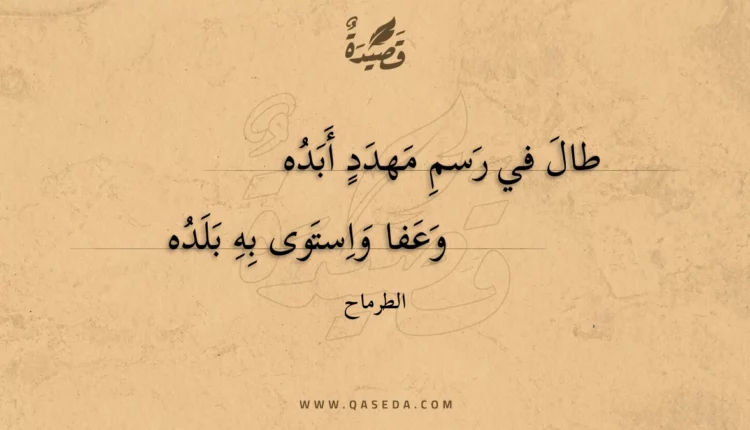 قَصِيدَةٌ
طالَ في رَسمِ مَهدَدٍ أَبَدُه
وَعَفا وَاِستَوى بِهِ بَلَدُه
الطرماح
WWW.QASEDA.COM